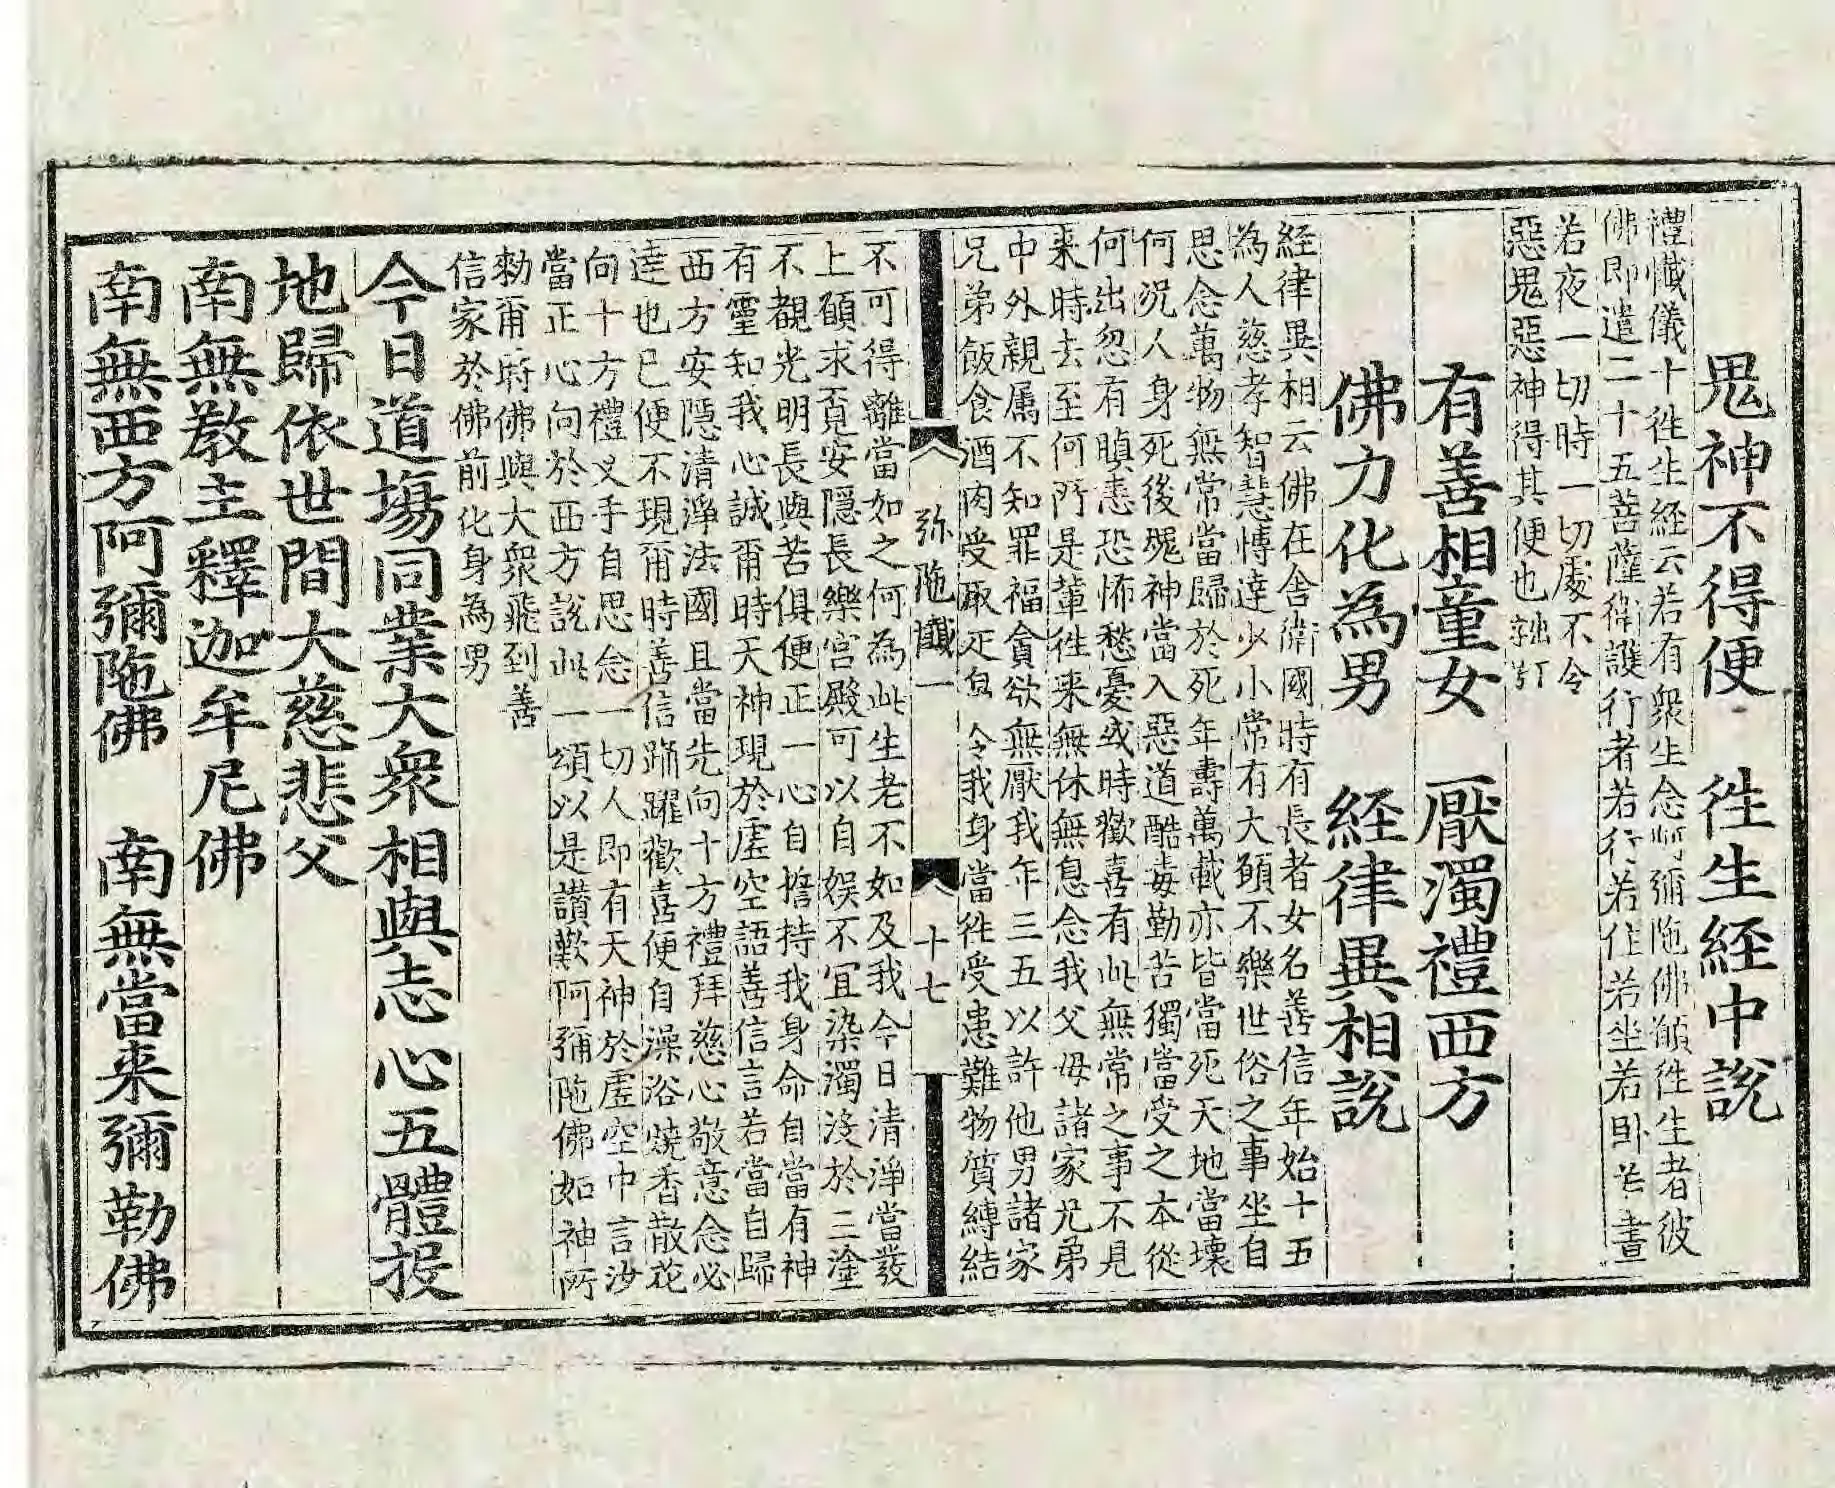 鬼神不得便　徃生經中說
禮懺儀十徃生經云若有衆生念阿彌陁佛願徃生者彼
佛即遣二十五菩薩衛護行者若行若住若坐若卧若晝
若夜一切時一切處不令
惡鬼惡神得其便也
有善相童女　厭濁禮西方
佛力化為男　經律異相說
經律異相云佛在舎衛國時有長者女名善信年始十五
為人慈孝智慧博達少小常有大願不樂世俗之事坐自
思念萬物無常當歸於死年壽萬載亦皆當死天地當壞
何況人身死後魂神當入惡道酷毒勤苦獨當受之本從
何出忽有瞋恚恐怖愁憂或時歡喜有此無常之事不見
来時去至何所是輩徃来無休無息念我父母諸家兄弟
中外親属不知罪福貪欲無厭我年三五以許他男諸家
兄弟飯食酒肉受取疋帛令我身當徃受患難物質縛結
弥陁懺一　十七
不可得離當如之何為此生老不如及我今日清淨當發
上願求覓安隱長樂宮殿可以自娱不冝染濁沒於三塗
不覩光明長與苦俱便正一心自擔持我身命自當有神
有靈知我心誠爾時天神現於虚空語善信言若當自歸
西方安隱清淨法國且當先向十方禮拜慈心敬意念必
逹也已便不現爾時善信踊躍歡喜便自澡浴燒香散花
向十方禮叉手自思念一切人即有天神於虚空中言汝
當正心向於西方說此一頌以是讃歎阿彌陁佛如神所
勑爾時佛與大衆飛到善
信家於佛前化身為男
今日道塲同業大衆相與志心五體投
地歸依世間大慈悲父
南無教主釋迦牟尼佛
南無西方阿彌陁佛　南無當来彌勒佛